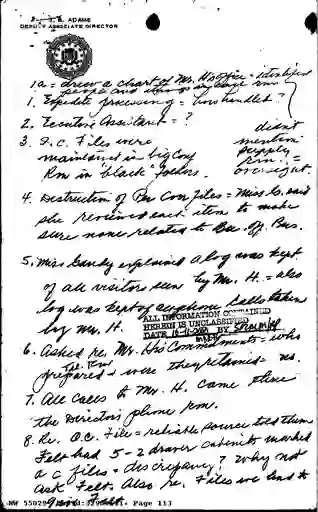 J. B. ADAMS
DEPUTY ASSOCIATE DIRECTOR
1a = drew a chart of Mr. H's office = identified
people and things in conf rm
1. Expedite processing = how handled?
2. Executive Assistant = ?
3. O.C. Files were
maintained in big Conf
Rm in "black" folders.
didn't
mention
supply
rm. =
oversight
4. Destruction of Per Con files = Miss G. said
she reviewed each item to make
sure none related to Bu. Off. Bus.
5. Miss Gandy explained a log was kept
of all visitors seen by Mr. H. = also
log was kept of all phone calls taken
by Mr. H.
ALL INFORMATION CONTAINED
HEREIN IS UNCLASSIFIED
DATE BY
6. Asked re. Mr. H's Commitments = who
prepared = were they retained = no.
7. All calls to Mr. H. came thru
the Director's phone rm.
8. Re. O.C. File = reliable source told them
Felt had 5 - 2 drawer cabinets marked
o c files = discrepancy? Why not
ask Felt. Also re. Files we send to
Page 113